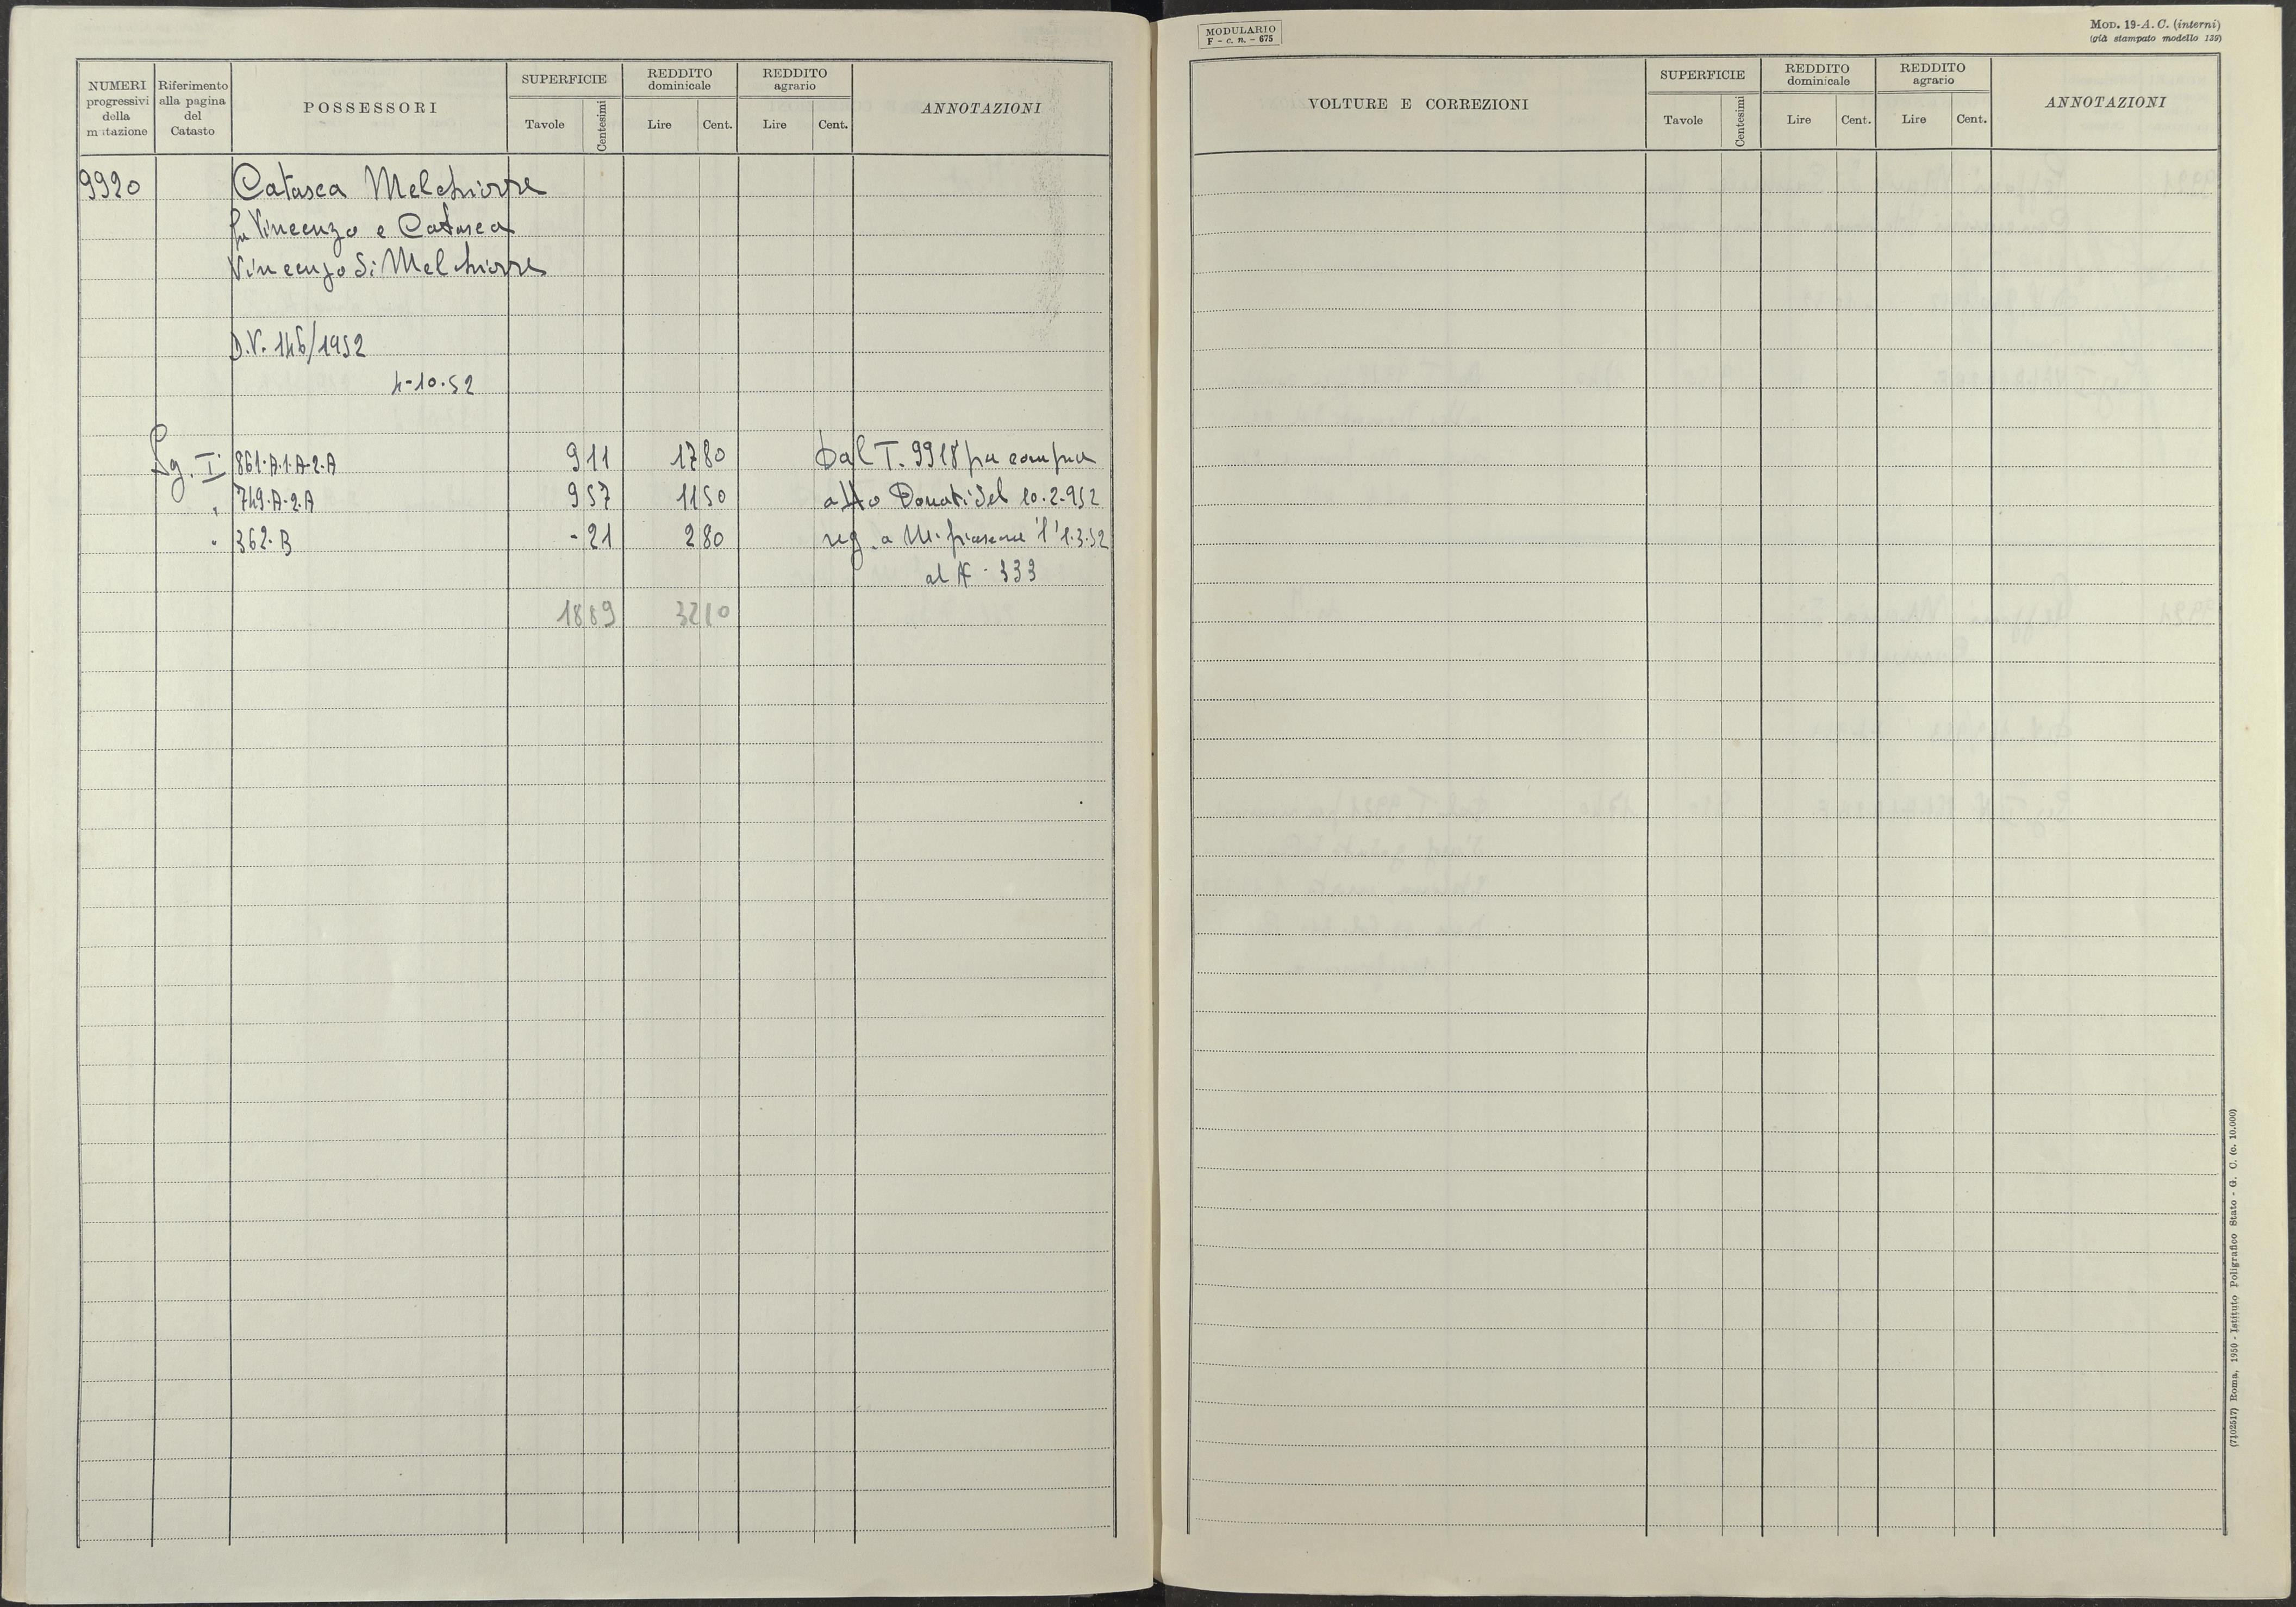 NUMERI progressivi della mutazione | Riferimento alla pagina del Catasto | POSSESSORI | SUPERFICIE Tavole Centesimi | REDDITO dominicale Lire Cent. | REDDITO agrario Lire Cent. | ANNOTAZIONI
9920 Catasca Melchiorre
fu Vincenzo e Catasca
Vincenzo di Melchiorre
D.V. 146/1952
4-10.52
Sg. I 861.A.1.A.2.A 9 11 17 80 Dal T. 9918 per compra
" 749.A.2.A 9 57 11 50 atto Donati del 10.2.952
" 362.B - 21 2 80 reg. a l'1.3.52
al N. 333
18 89 32 10
MODULARIO
F - c. n. - 675
MOD. 19-A. C. (interni)
(già stampato modello 139)
VOLTURE E CORREZIONI | SUPERFICIE Tavole Centesimi | REDDITO dominicale Lire Cent. | REDDITO agrario Lire Cent. | ANNOTAZIONI
(7102517) Roma, 1950 - Istituto Poligrafico Stato - G. C. (c. 10.000)